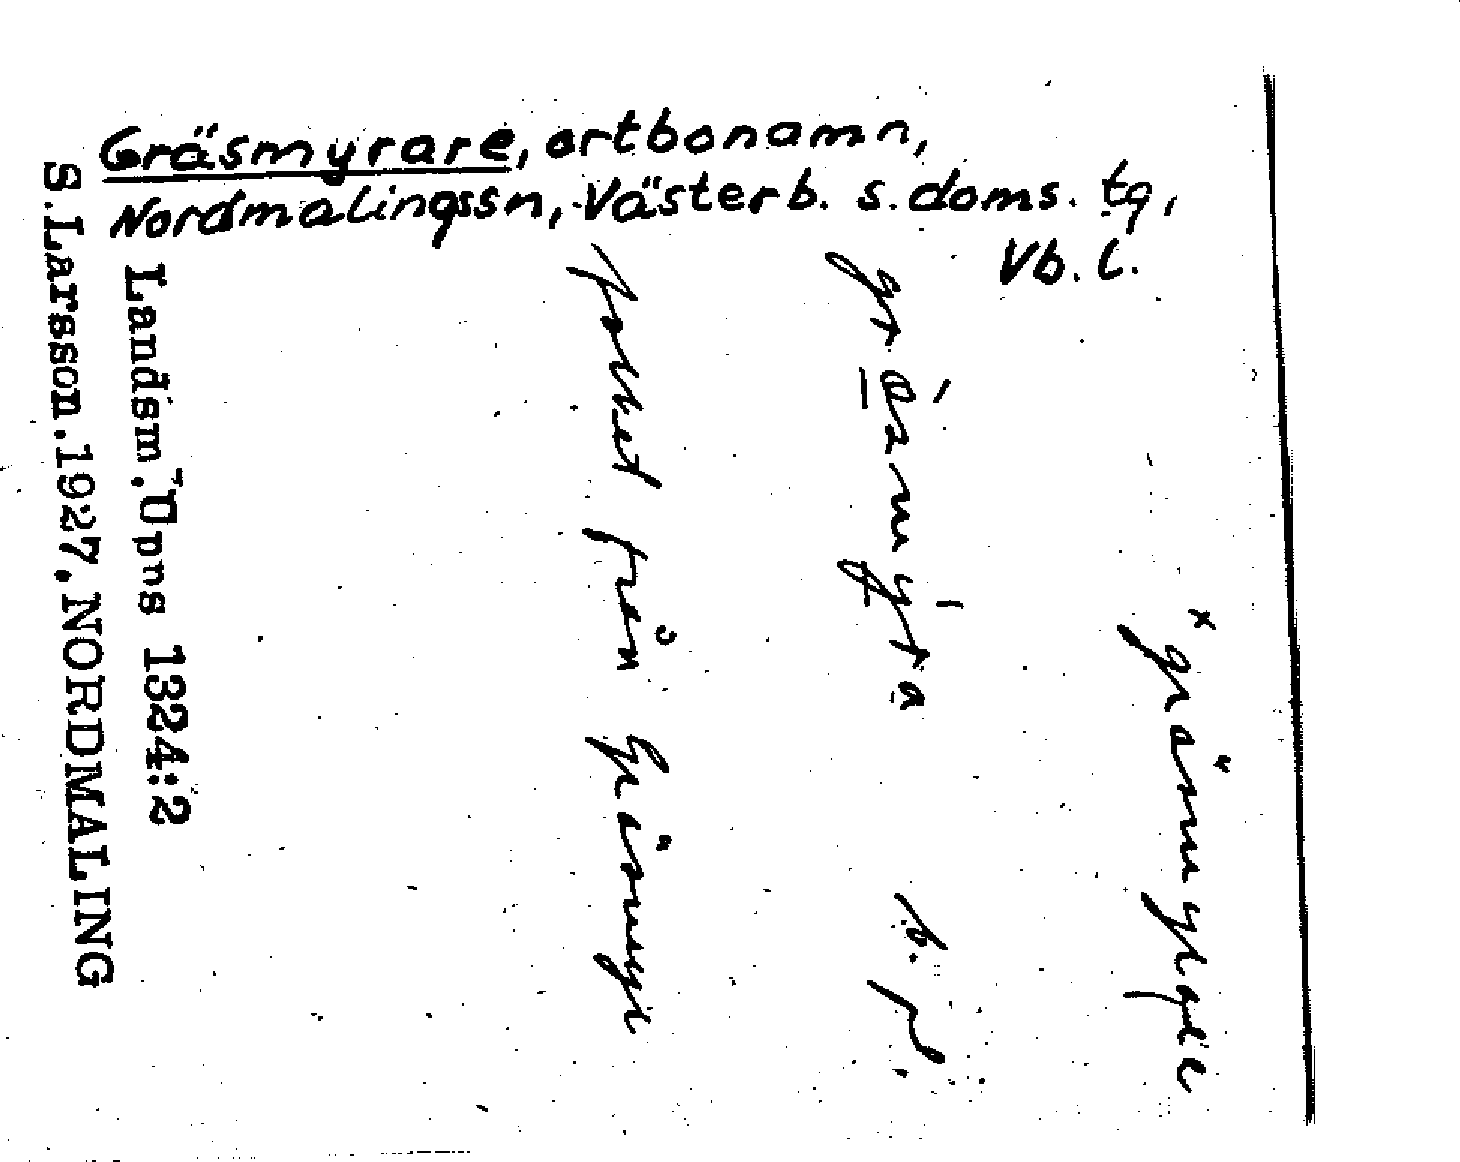 Gräsmyrare, ortbonamn,
Nordmalingssn, Västerb. s. doms. tg,
Vb. l.
b. pl.
folket från Gräsmyr
Landsm. Upps 1324:2
S. Larsson. 1927. NORDMALING